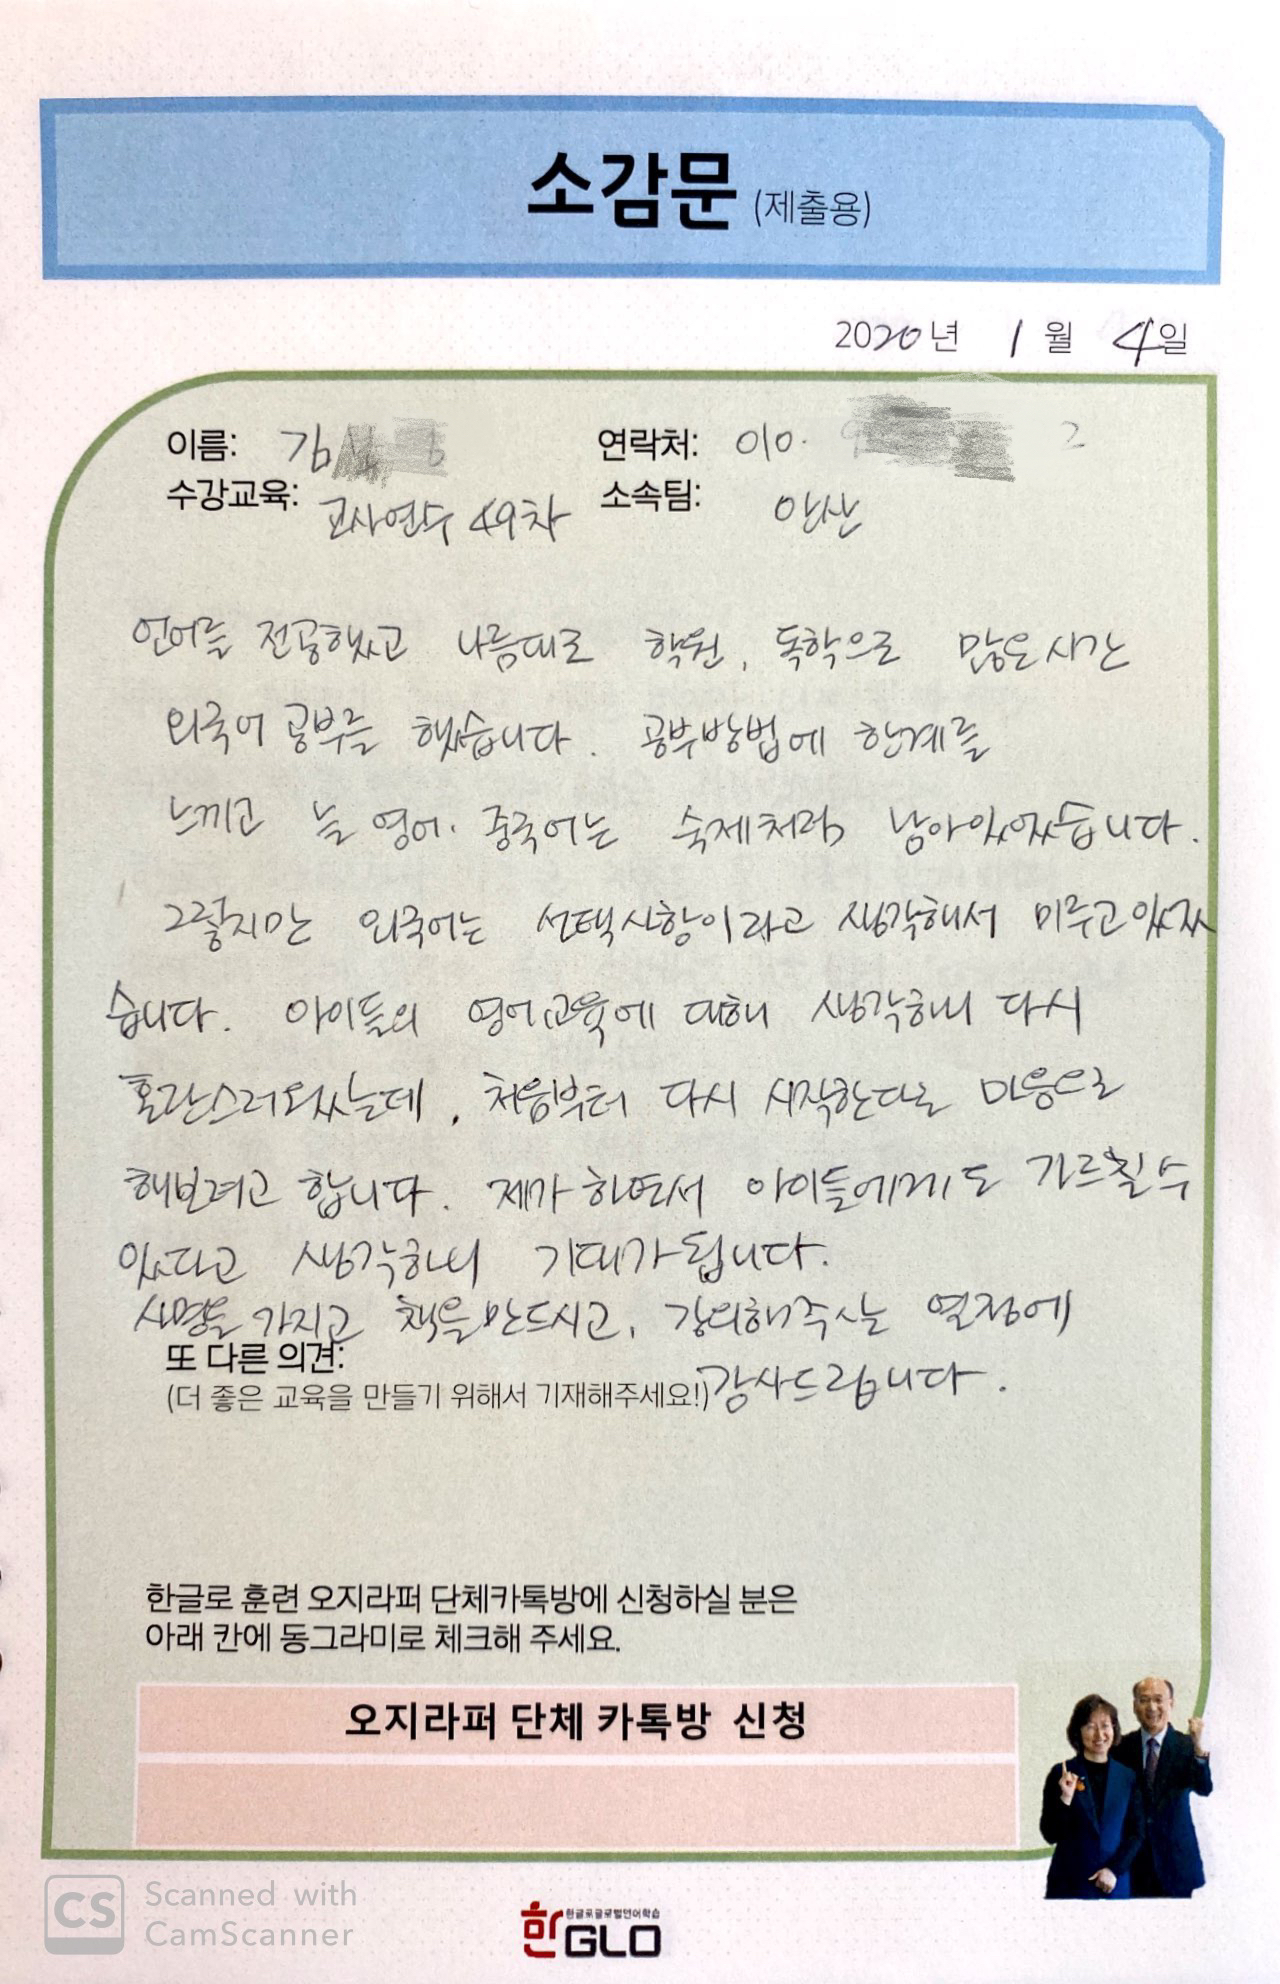 소감문 (제출용)
2020년 1월 4일
이름: 김
연락처: 010.
수강교육: 교사연수 49차
소속팀: 안산
언어를 전공했고 나름대로 학원, 독학으로 많은시간
외국어 공부를 했습니다. 공부방법에 한계를
느끼고 늘 영어. 중국어는 숙제처럼 남아있었습니다.
그렇지만 외국어는 선택사항이라고 생각해서 미루고있었
습니다. 아이들의 영어교육에 대해 생각하니 다시
혼란스러웠는데, 처음부터 다시 시작한다는 마음으로
해보려고 합니다. 제가 하면서 아이들에게도 가르칠 수
있다고 생각하니 기대가 됩니다.
사명을 가지고 책을 만드시고, 강의해주시는 열정에
감사드립니다.
또 다른 의견:
(더 좋은 교육을 만들기 위해서 기재해주세요!)
한글로 훈련 오지라퍼 단체카톡방에 신청하실 분은
아래 칸에 동그라미로 체크해 주세요.
오지라퍼 단체 카톡방 신청
CS Scanned with
CamScanner
한글로글로벌언어학습
한GLO